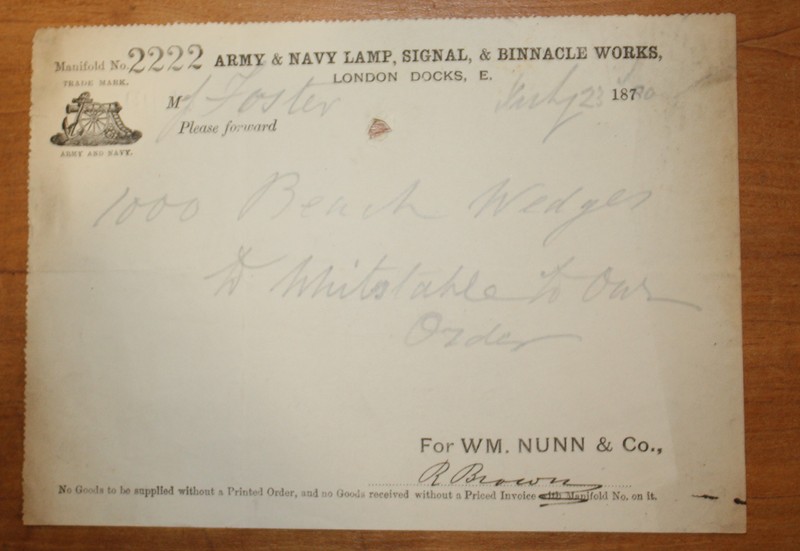 Manifold No. 2222 ARMY & NAVY LAMP, SIGNAL, & BINNACLE WORKS,
LONDON DOCKS, E.
TRADE MARK.
ARMY AND NAVY.
M J Foster July 23 187
Please forward
1000 Beach Wedges
To Whitstable to Our
Order
For WM. NUNN & Co.,
R Brown
No Goods to be supplied without a Printed Order, and no Goods received without a Priced Invoice with Manifold No. on it.